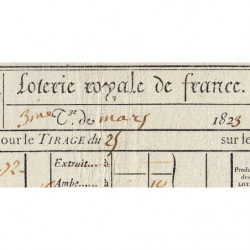 Loterie royale de france.
3me Tge. de mars 1823
our le TIRAGE du 25 sur le
Extrait....à
Ambe....à
Produ
des
LOT